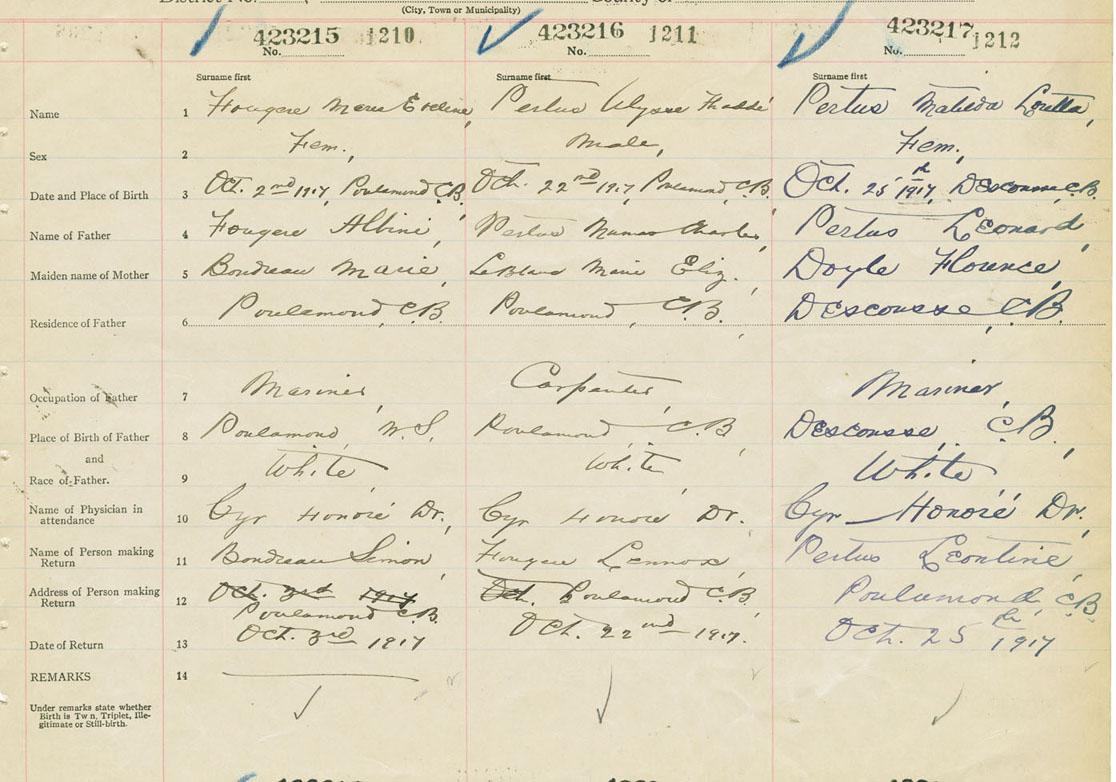 (City, Town or Municipality)
423215 1210
No.
423216 1211
No.
423217 1212
No.
Surname first
Surname first
Surname first
Name 1 Fougere Marie Eveline, Pertus Ulysse Pertus Matilda Loretta,
Sex 2 Fem., Male, Fem.,
Date and Place of Birth 3 Oct. 2nd 1917, Poulamond C.B. Oct. 22nd 1917, Poulamond, C.B. Oct. 25th 1917, Descousse, C.B.
Name of Father 4 Fougere Albini, Pertus Charles, Pertus Leonard,
Maiden name of Mother 5 Boudreau Marie, LeBlanc Marie Eliz., Doyle Florence,
Residence of Father 6 Poulamond, C.B. Poulamond, C.B., Descousse, C.B.,
Occupation of Father 7 Mariner, Carpenter, Mariner,
Place of Birth of Father 8 Poulamond, N.S. Poulamond, C.B Descousse, C.B,
and
Race of Father. 9 White, White, White,
Name of Physician in
attendance 10 Cyr Honoré Dr., Cyr Honoré Dr. Cyr Honoré Dr.
Name of Person making
Return 11 Boudreau Simon, Fougere Lennox, Pertus Leontine,
Address of Person making
Return 12 Oct. 3rd 1917 Oct. Poulamond C.B., Poulamond, C.B.
Poulamond C.B.
Date of Return 13 Oct. 3rd 1917 Oct. 22nd 1917. Oct. 25th 1917
REMARKS 14
Under remarks state whether
Birth is Twin, Triplet, Ille-
gitimate or Still-birth.